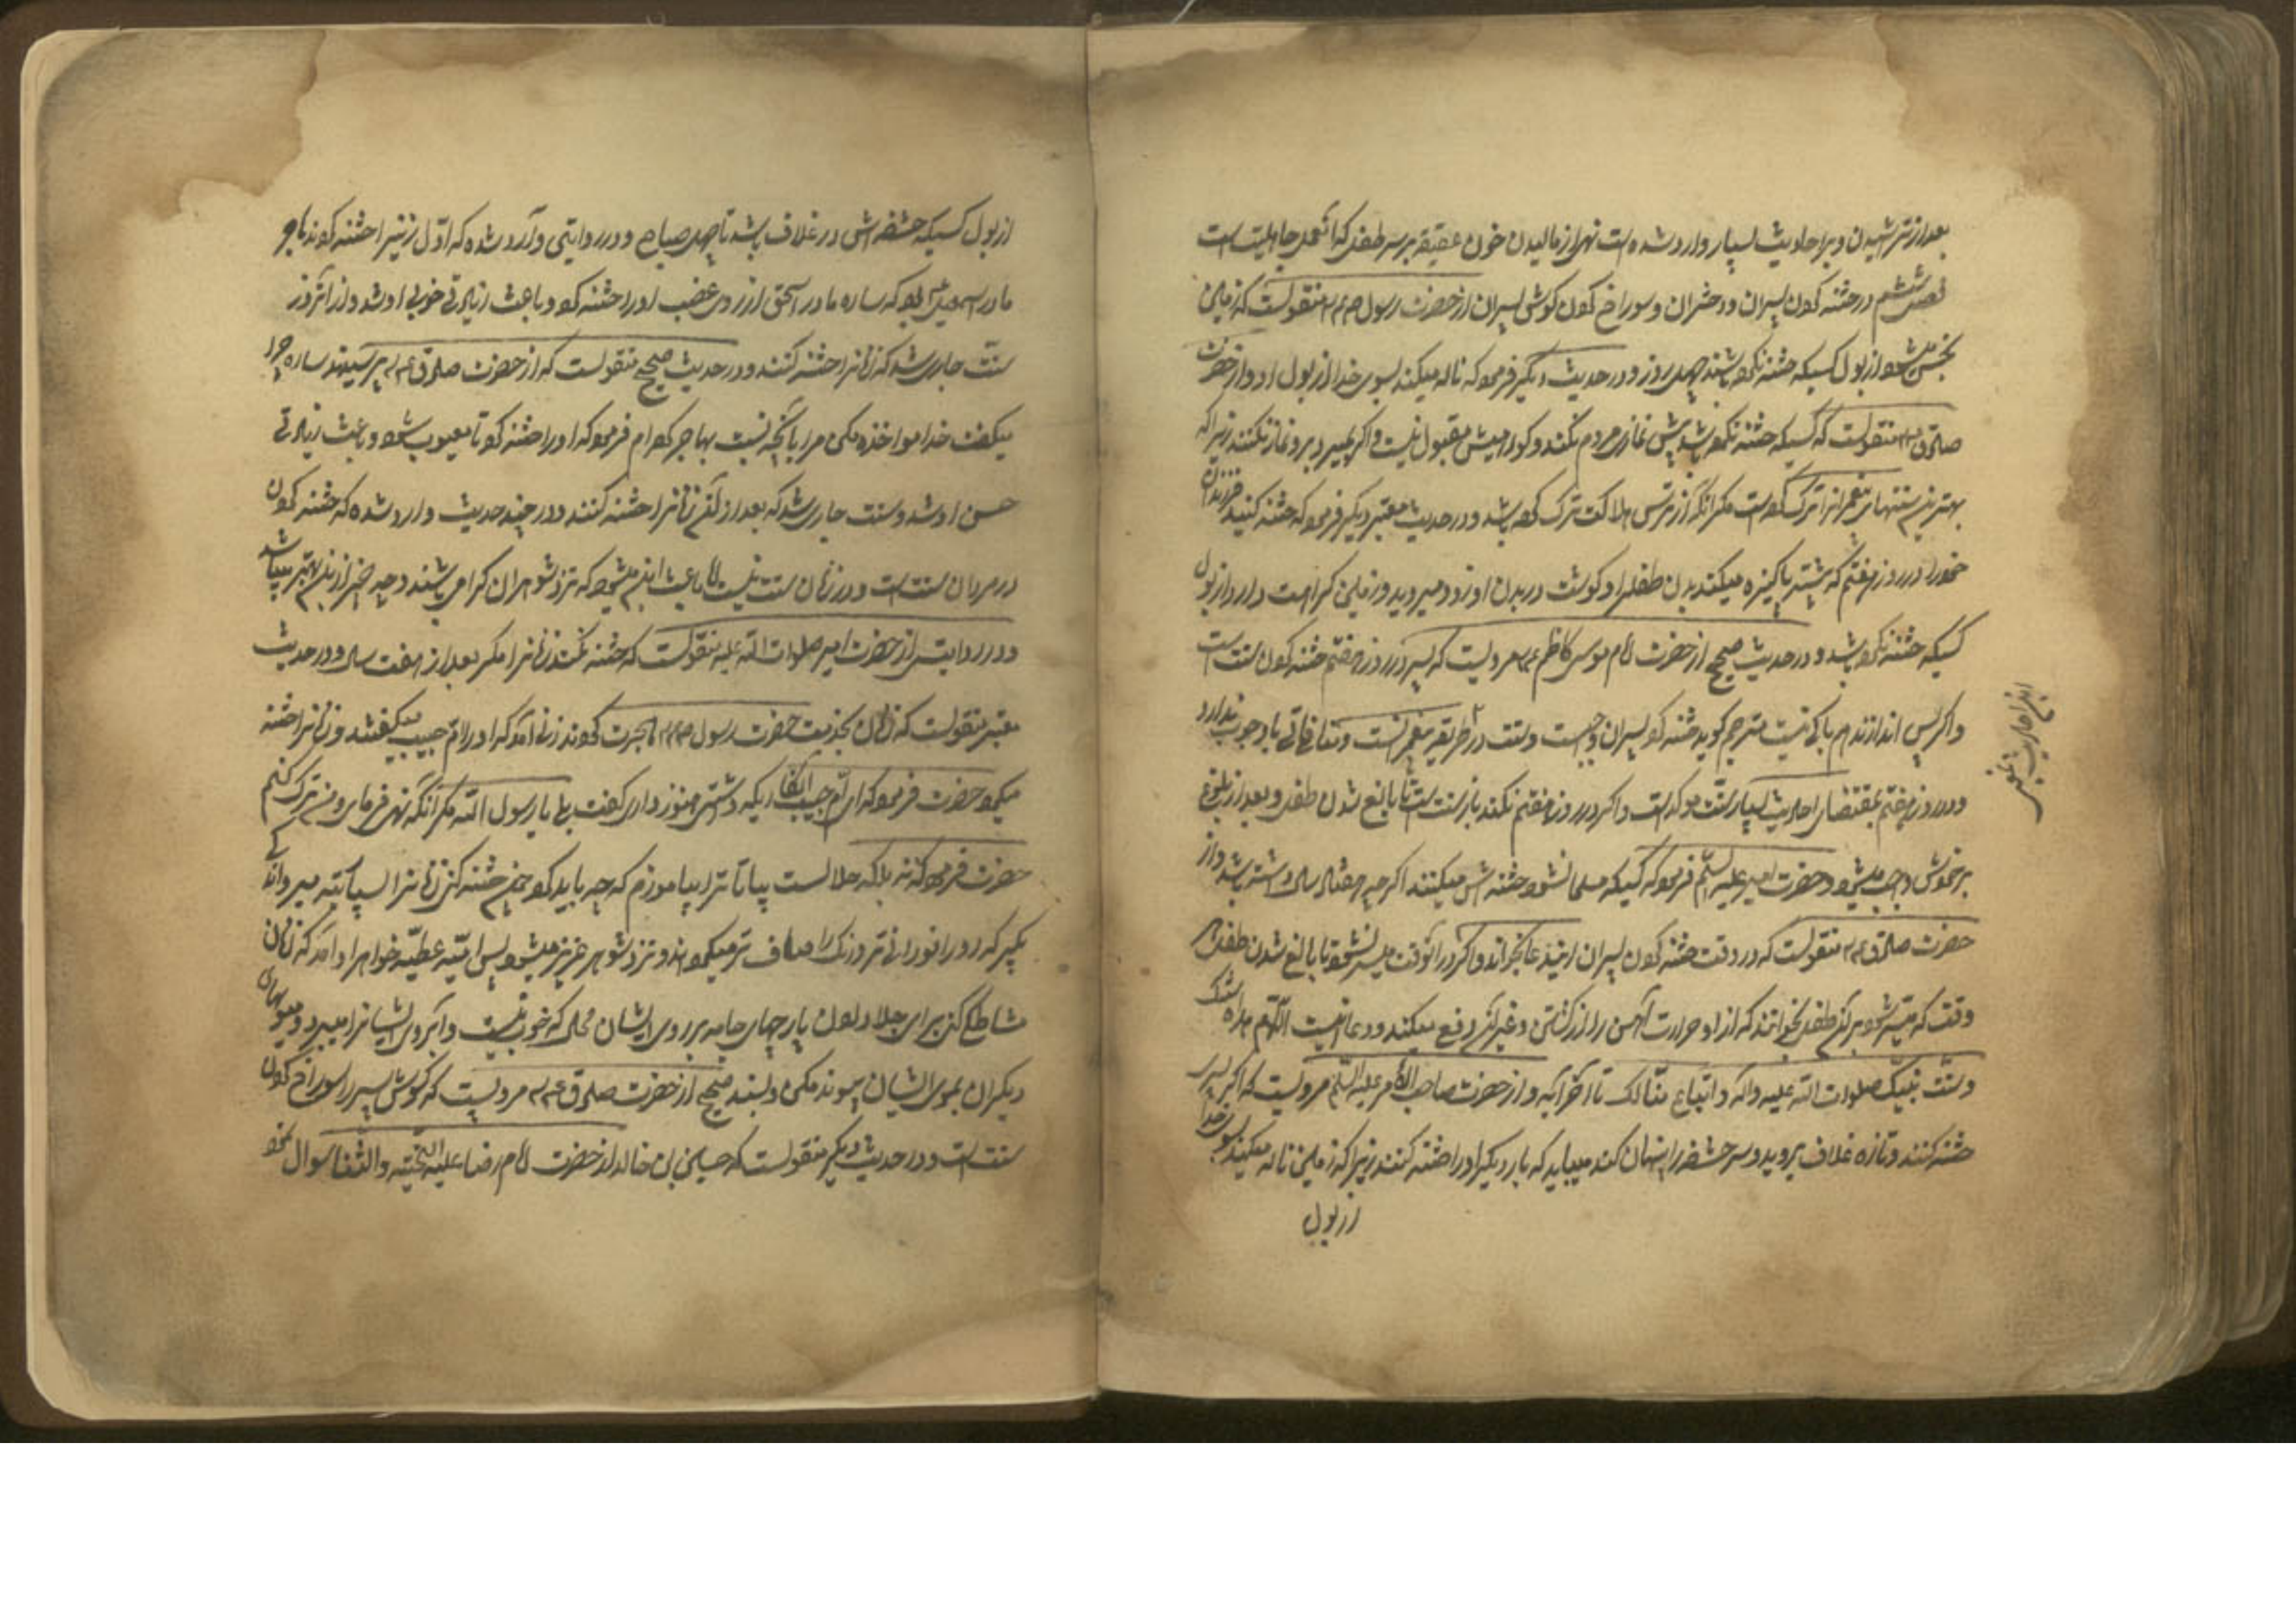 بعد از تراشیدن و در احادیث بسیار وارد شده است نهی از مالیدن خون عقیقه بر سر طفل که از عمل جاهلیت است
فصل ششم در ختنه کردن پسران و دختران و سوراخ کردن گوش پسران از حضرت رسول صم منقولست که زمین
نجس میشود از بول کسیکه ختنه نکرده باشند چهل روز و در حدیث دیگر فرمود که ناله میکند بسوی خدا از بول او و از حضرت
صادق ع م منقولست که کسیکه ختنه نکرده باشد پیش نمازی مردم نکند و گواهیش مقبول نیست و اگر بمیرد بر او نماز نکنند زیرا که
بهترین سنتهای پیغمبر را ترک کرده است مگر آنکه از ترس هلاکت ترک کرده باشد و در حدیث معتبر دیگر فرمود که ختنه کنید فرزندان
خود را در روز هفتم که بیشتر پاکیزه میکند بدن طفل را و گوشت در بدن او زود میروید و زمین کراهت دارد از بول
کسیکه ختنه نکرده باشد و در حدیث صحیح از حضرت امام موسی کاظم ع م مرویست که پسر در روز هفتم ختنه کردن سنت است
و اگر پس اندازند هم باکی نیست مترجم گوید ختنه کردن پسران واجبست و سنت در طریقه پیغمبرانست و منافاتی با وجوب ندارد
و در روز هفتم بمقتضای احادیث بسیار سنت مؤکد است و اگر در روز هفتم نکنند باز سنت است تا بالغ شدن طفل و بعد از بلوغ
بر خودش واجب میشود و حضرت امیر علیه السلم فرمود که کسیکه مسلمان شود ختنه اش میکنند اگرچه هشتاد سال داشته باشد و از
حضرت صادق ع م منقولست که در وقت ختنه کردن پسران این دعا بخوانند و اگر در آنوقت میسر نشود تا بالغ شدن طفل هر
وقت که میسر شود بر آن طفل بخوانند که از او حرارت آهن را از کشتن و غیر آن دفع میکند و دعا اینست اللهم هذه سنتک
و سنت نبیک صلوات الله علیه و آله و اتباع منا لک تا آخر آیه و از حضرت صاحب الامر علیه السلم مرویست که اگر پسر
ختنه کنند و تازه غلاف بروید و سر حشفه را پنهان کند میباید که بار دیگر او را ختنه کنند زیرا که زمین ناله میکند بسوی خدا
از بول
از بول کسیکه حشفه اش در غلاف باشد تا چهل صباح و در روایتی وارد شده که اول زنیرا ختنه کردند هاجر
مادر اسمعیل بود که ساره مادر اسحق از روی غضب او را ختنه کرد و باعث زیادتی خوبی او شد و از آنروز
سنت جاری شد که زنانرا ختنه کنند و در حدیث صحیح منقولست که از حضرت صادق ع م پرسیدند ساره چرا
میگفت خدایا مواخذه مکن مرا بآنچه نسبت بهاجر کردم فرمود که او را ختنه کرد تا معیوب شود و باعث زیادتی
حسن او شد و سنت جاری شد که بعد از آن زنانرا ختنه کنند و در چند حدیث وارد شده که ختنه کردن
در مردان سنت است و در زنان سنت نیست اما باعث این میشود که نزد شوهران گرامی باشند و چه چیز ازین بهتر میباشد
و در روایتی از حضرت امیر صلوات الله علیه منقولست که ختنه نکنند زنانرا مگر بعد از هفت سال و در حدیث
معتبر منقولست که زنان بخدمت حضرت رسول صم هجرت کردند زنی آمد که او را ام حبیب میگفتند و زنانرا ختنه
میکرد حضرت فرمود که ای ام حبیب آیا کاریکه داشتی هنوز داری گفت بلی یا رسول الله مگر آنکه نهی فرمائی و من ترک کنم
حضرت فرمود که نه بلکه حلالست بیا تا ترا بیاموزم که چه باید کرد چون ختنه کنی زنانرا بسیار به ته میر و اندکی
بگیر که رو را نورانی تر و رنگ را صاف تر میکند و نزد شوهر عزیز میشود پس ام عطیه خواهر او آمد که زنان
مشاطگی کن برای جلا دادن پارچهای جامه بر روی ایشان محک که خوب نیست و آبروی ایشانرا میبرد و موهای
دیگران بموی ایشان پیوند مکن و بسند صحیح از حضرت صادق ع م مرویست که گوش پسر را سوراخ کردن
سنت است و در حدیث دیگر منقولست که حسین بن خالد از حضرت امام رضا علیه التحیه و الثنا سوال کرد